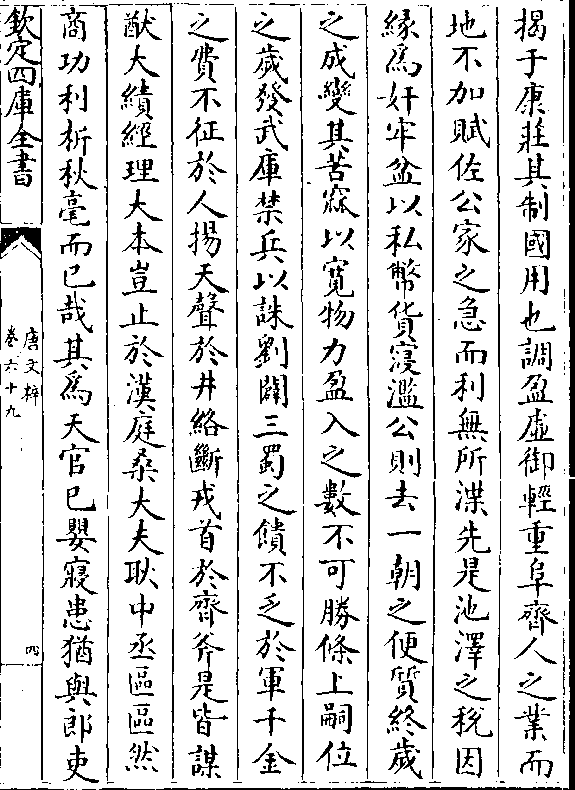 揭于康莊其制國用也調盈虛御輕重阜齊人之業而
地不加賦佐公家之急而利無所渫先是池澤之稅因
緣為奸牢盆以私幣貨寖濫公則去一朝之便質終歲
之成變其苦窳以寛物力盈入之數不可勝條上嗣位
之歲發武庫禁兵以誅劉闢三蜀之饋不乏於軍千金
之費不征於人揚天聲於井絡斷戎首於齊斧是皆謀
猷大績經理大本豈止於漢庭桑大夫耿中丞區區然
商功利析秋毫而已哉其為天官已嬰寢患猶與郎吏
欽定四庫全書
唐文粹
卷六十九
四